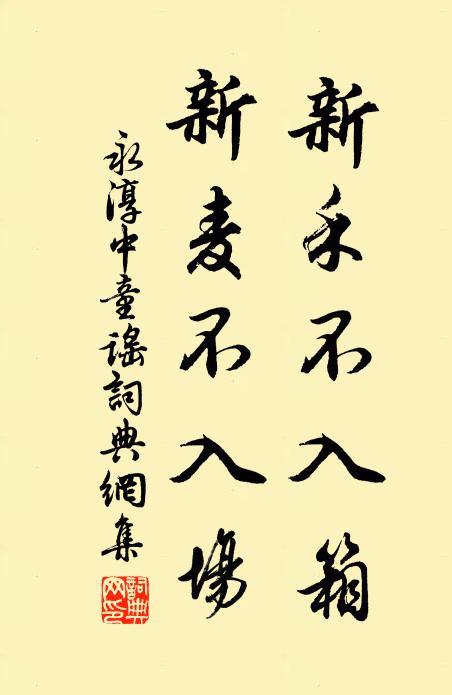 新禾不入箱
新麦不入場
永淳中童謡詞典網集
詞典网印